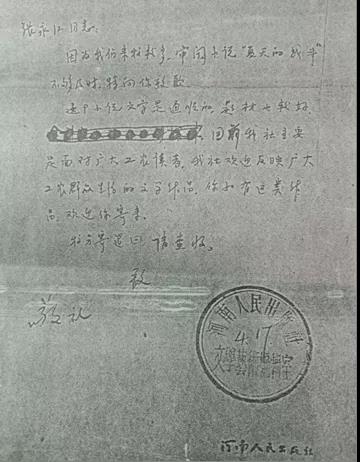 张永江同志:
因为我们来稿较多,审阅小说"夏天的战斗"
不够及时,特向你致歉。
这个小说文字是通顺的,题材也较好
目前我社主要
是面对广大工农读者,我社欢迎反映广大
工农群众生活的文学作品,你如有这类作
品,欢迎你寄来。
稿子寄还回 请查收。
致
敬礼
河南人民出版社
4.17
文学
河南人民出版社